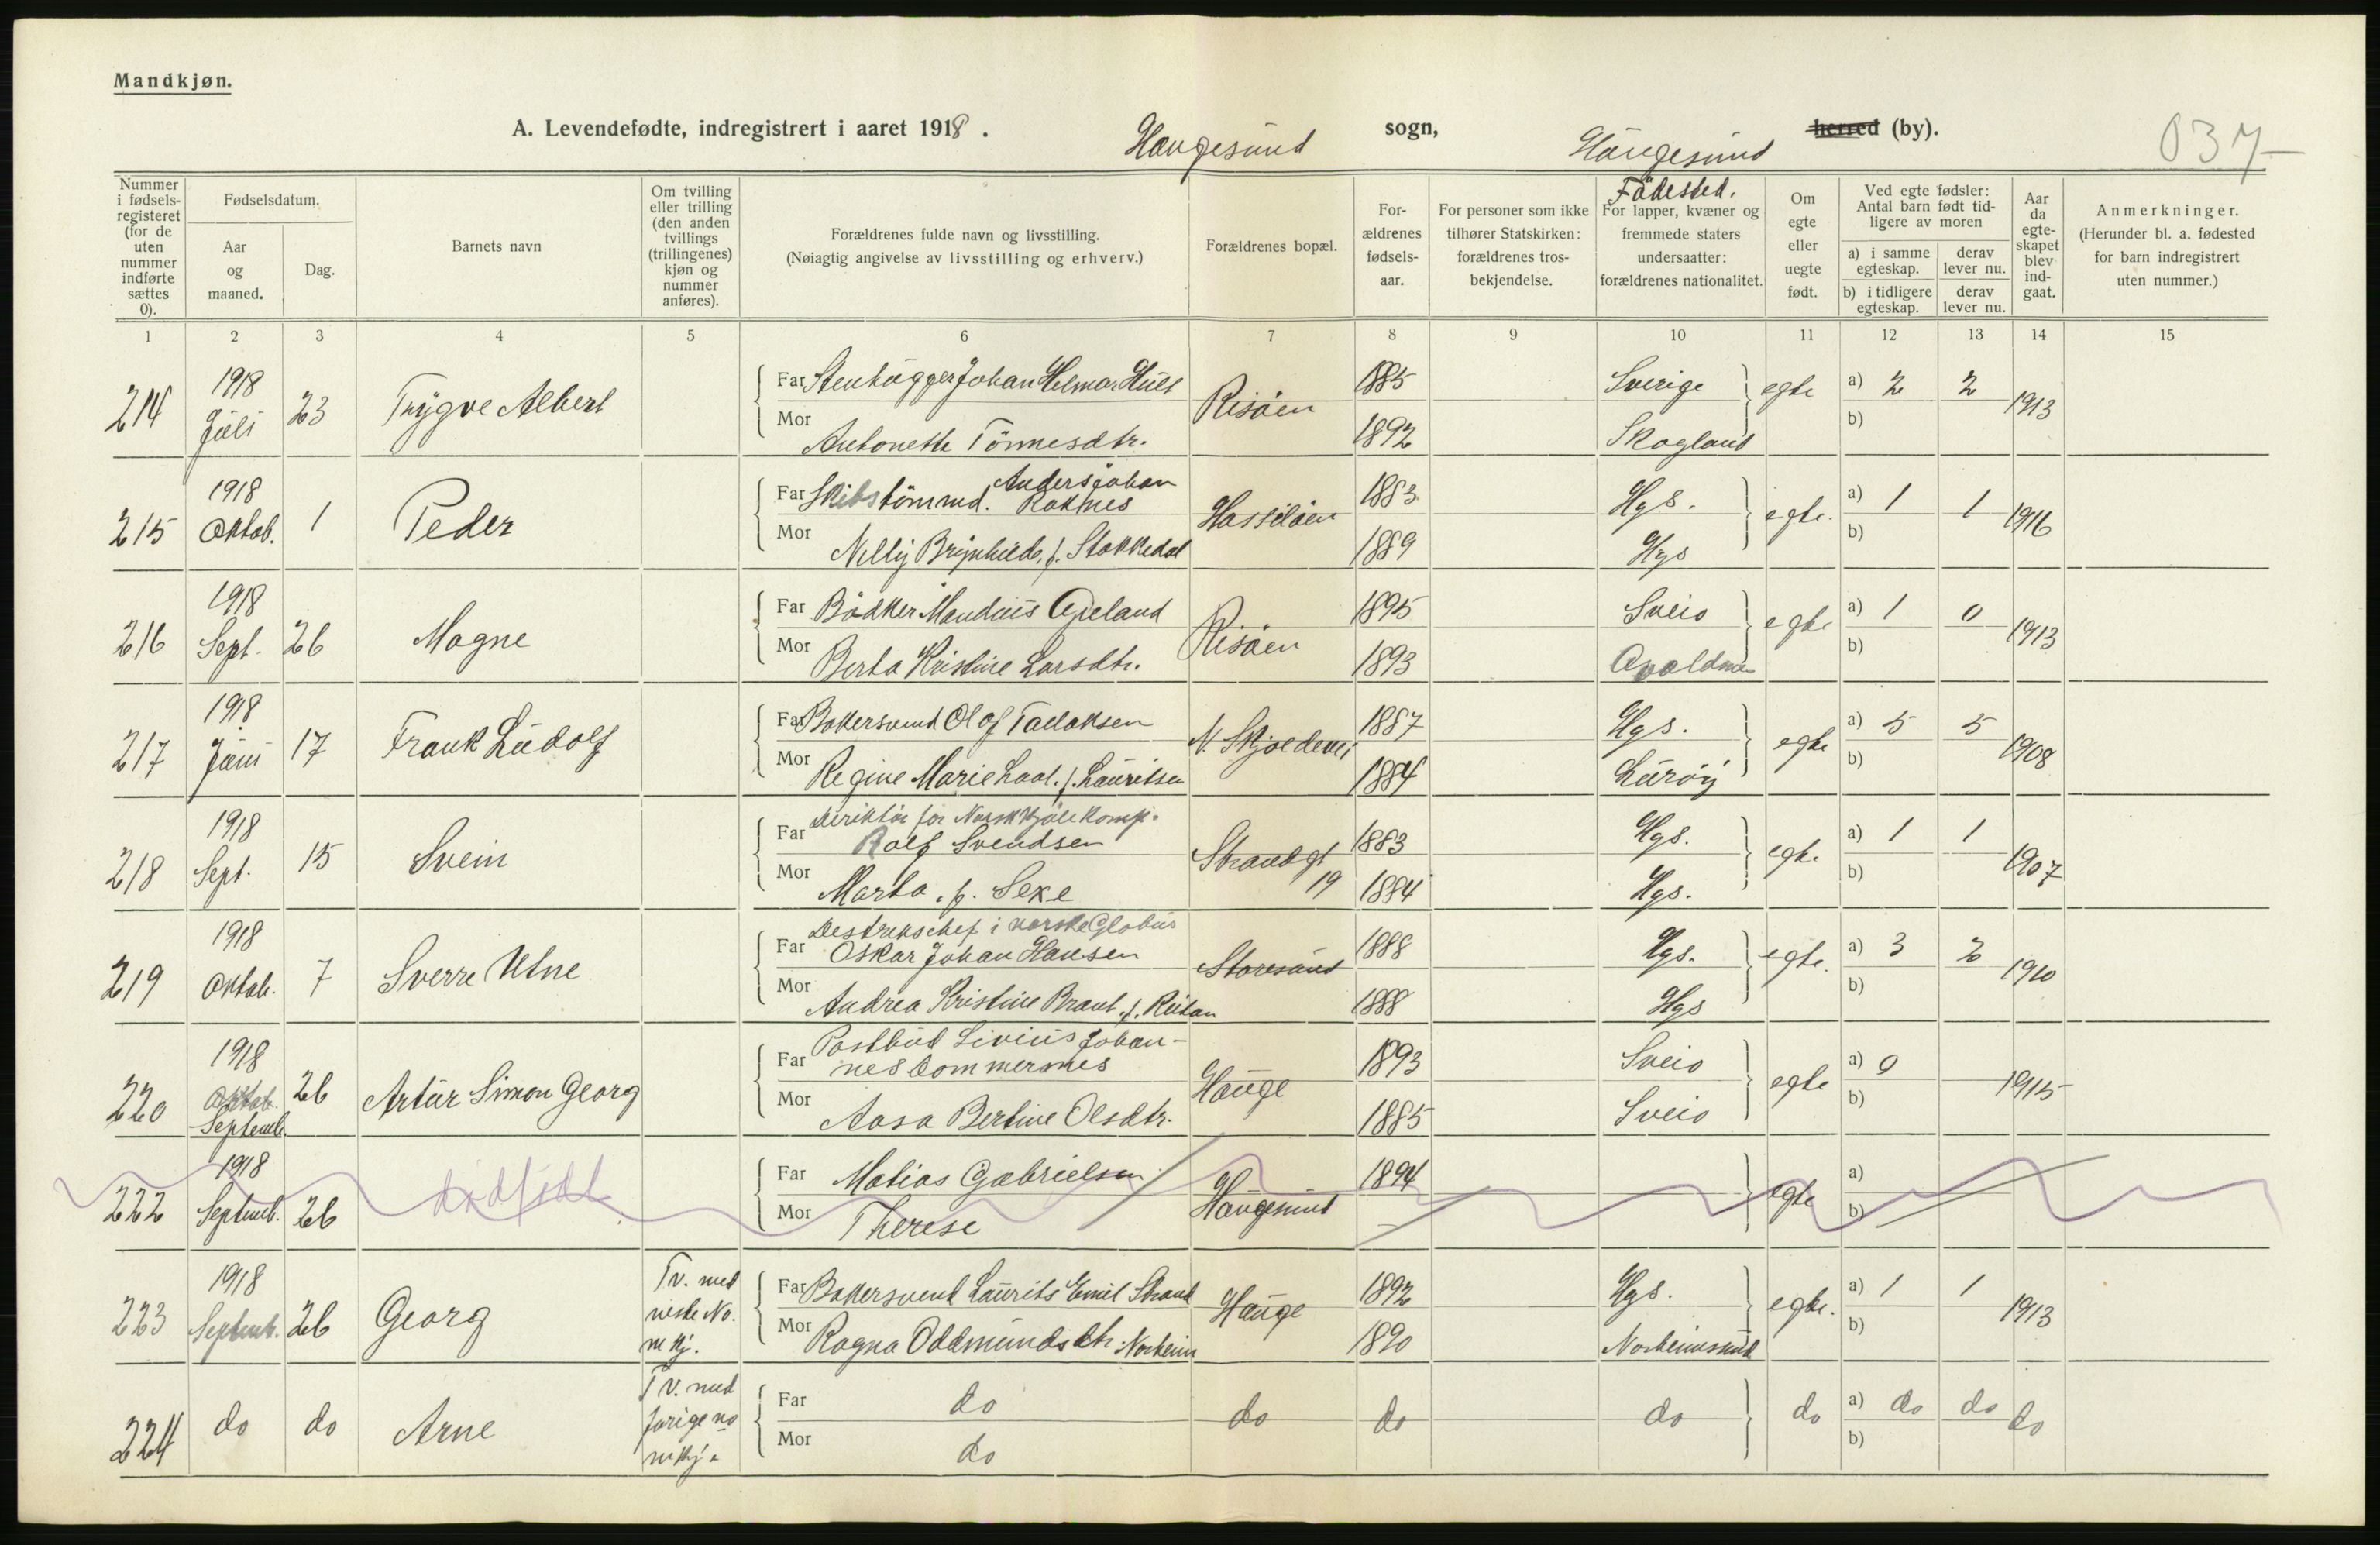 Mandkjøn.
A. Levendefødte, indregistrert i aaret 1918. Haugesund sogn, Haugesund herred (by).
037
Nummer i fødsels-registeret (for de uten nummer indførte sættes 0).
Fødselsdatum.
Aar og maaned.
Dag.
Barnets navn
Om tvilling eller trilling (den anden tvillings (trillingenes) kjøn og nummer anføres).
Forældrenes fulde navn og livsstilling.
(Nøiagtig angivelse av livsstilling og erhverv.)
Forældrenes bopæl.
For-ældrenes fødsels-aar.
For personer som ikke tilhører Statskirken: forældrenes tros-bekjendelse.
Födested.
For lapper, kvæner og fremmede staters undersaatter: forældrenes nationalitet.
Om egte eller uegte født.
Ved egte fødsler: Antal barn født tid-ligere av moren
a) i samme egteskap.
derav lever nu.
b) i tidligere egteskap.
derav lever nu.
Aar da egte-skapet blev ind-gaat.
Anmerkninger.
(Herunder bl. a. fødested for barn indregistrert uten nummer.)
1 2 3 4 5 6 7 8 9 10 11 12 13 14 15
214 1918 Juli 23 Trygve Albert
Far Stenhugger Johan Helmar Hult Risöen 1885 Sverige egte a) 2 2 1913
Mor Antonette Tönnesdtr. 1892 Skogland b)
215 1918 Oktob. 1 Peder
Far Skibstömmd. Anders Johan Roknes Hasselöen 1883 Hgs. egte. a) 1 1 1916
Mor Nelly Brynhild, f. Stokkedal 1889 Hgs b)
216 1918 Sept. 26 Magne
Far Bödker Mandius Apeland Risöen 1895 Sveio egte a) 1 0 1913
Mor Berta Kristine Larsdtr. 1893 Avaldsnes b)
217 1918 Juni 17 Frank Ludolf
Far Bakersvend Olof Tallaksen N. Skjoldevei 1887 Hgs. egte a) 5 5 1908
Mor Regine Marie f. Lauritsen 1884 Luröy b)
218 1918 Sept. 15 Svein
Far Direktör for Norsk Kjöle Komp. Rolf Svendsen Strandgt 19 1883 Hgs. egte a) 1 1 1907
Mor Marta, f. Sexe 1884 Hgs. b)
219 1918 Oktob. 7 Sverre Utne
Far i norske Globus Oskar Johan Hansen Storesund 1888 Hgs. egte. a) 3 2 1910
Mor Andrea Kristine f. 1888 Hgs b)
220 1918 Oktob. Septemb. 26 Artur Simon Georg
Far Postbud Livius Johan-nes Lommersnes Hauge 1893 Sveio egte a) 0 1915
Mor Aasa Bertine Olsdtr. 1885 Sveio b)
222 1918 Septemb. 26 dödfödt
Far Matias Gabrielsen Haugesund 1894 egte a)
Mor Therese b)
223 1918 Septemb. 26 Georg Tv. med neste No. m kj.
Far Bakersvend Laurits Emil Strand Hauge 1892 Hgs. egte. a) 1 1 1913
Mor Ragna Oddmundsdtr. Norheim 1890 Norheimsund b)
224 do do Arne Tv. med forige no m kj.
Far do do do do do a) do do do
Mor do b)